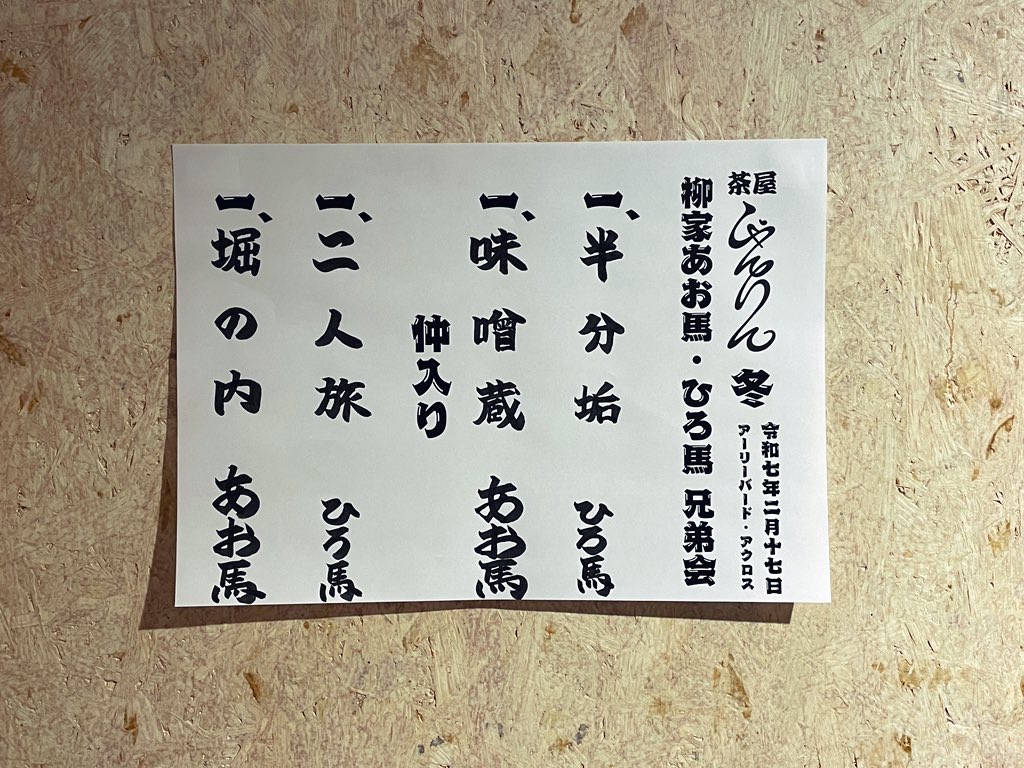 茶屋 冬
令和七年二月十七日
アーリーバード・アクロス
柳家あお馬・ひろ馬 兄弟会
一、半分垢 ひろ馬
一、味噌蔵 あお馬
仲入り
一、二人旅 ひろ馬
一、堀の内 あお馬